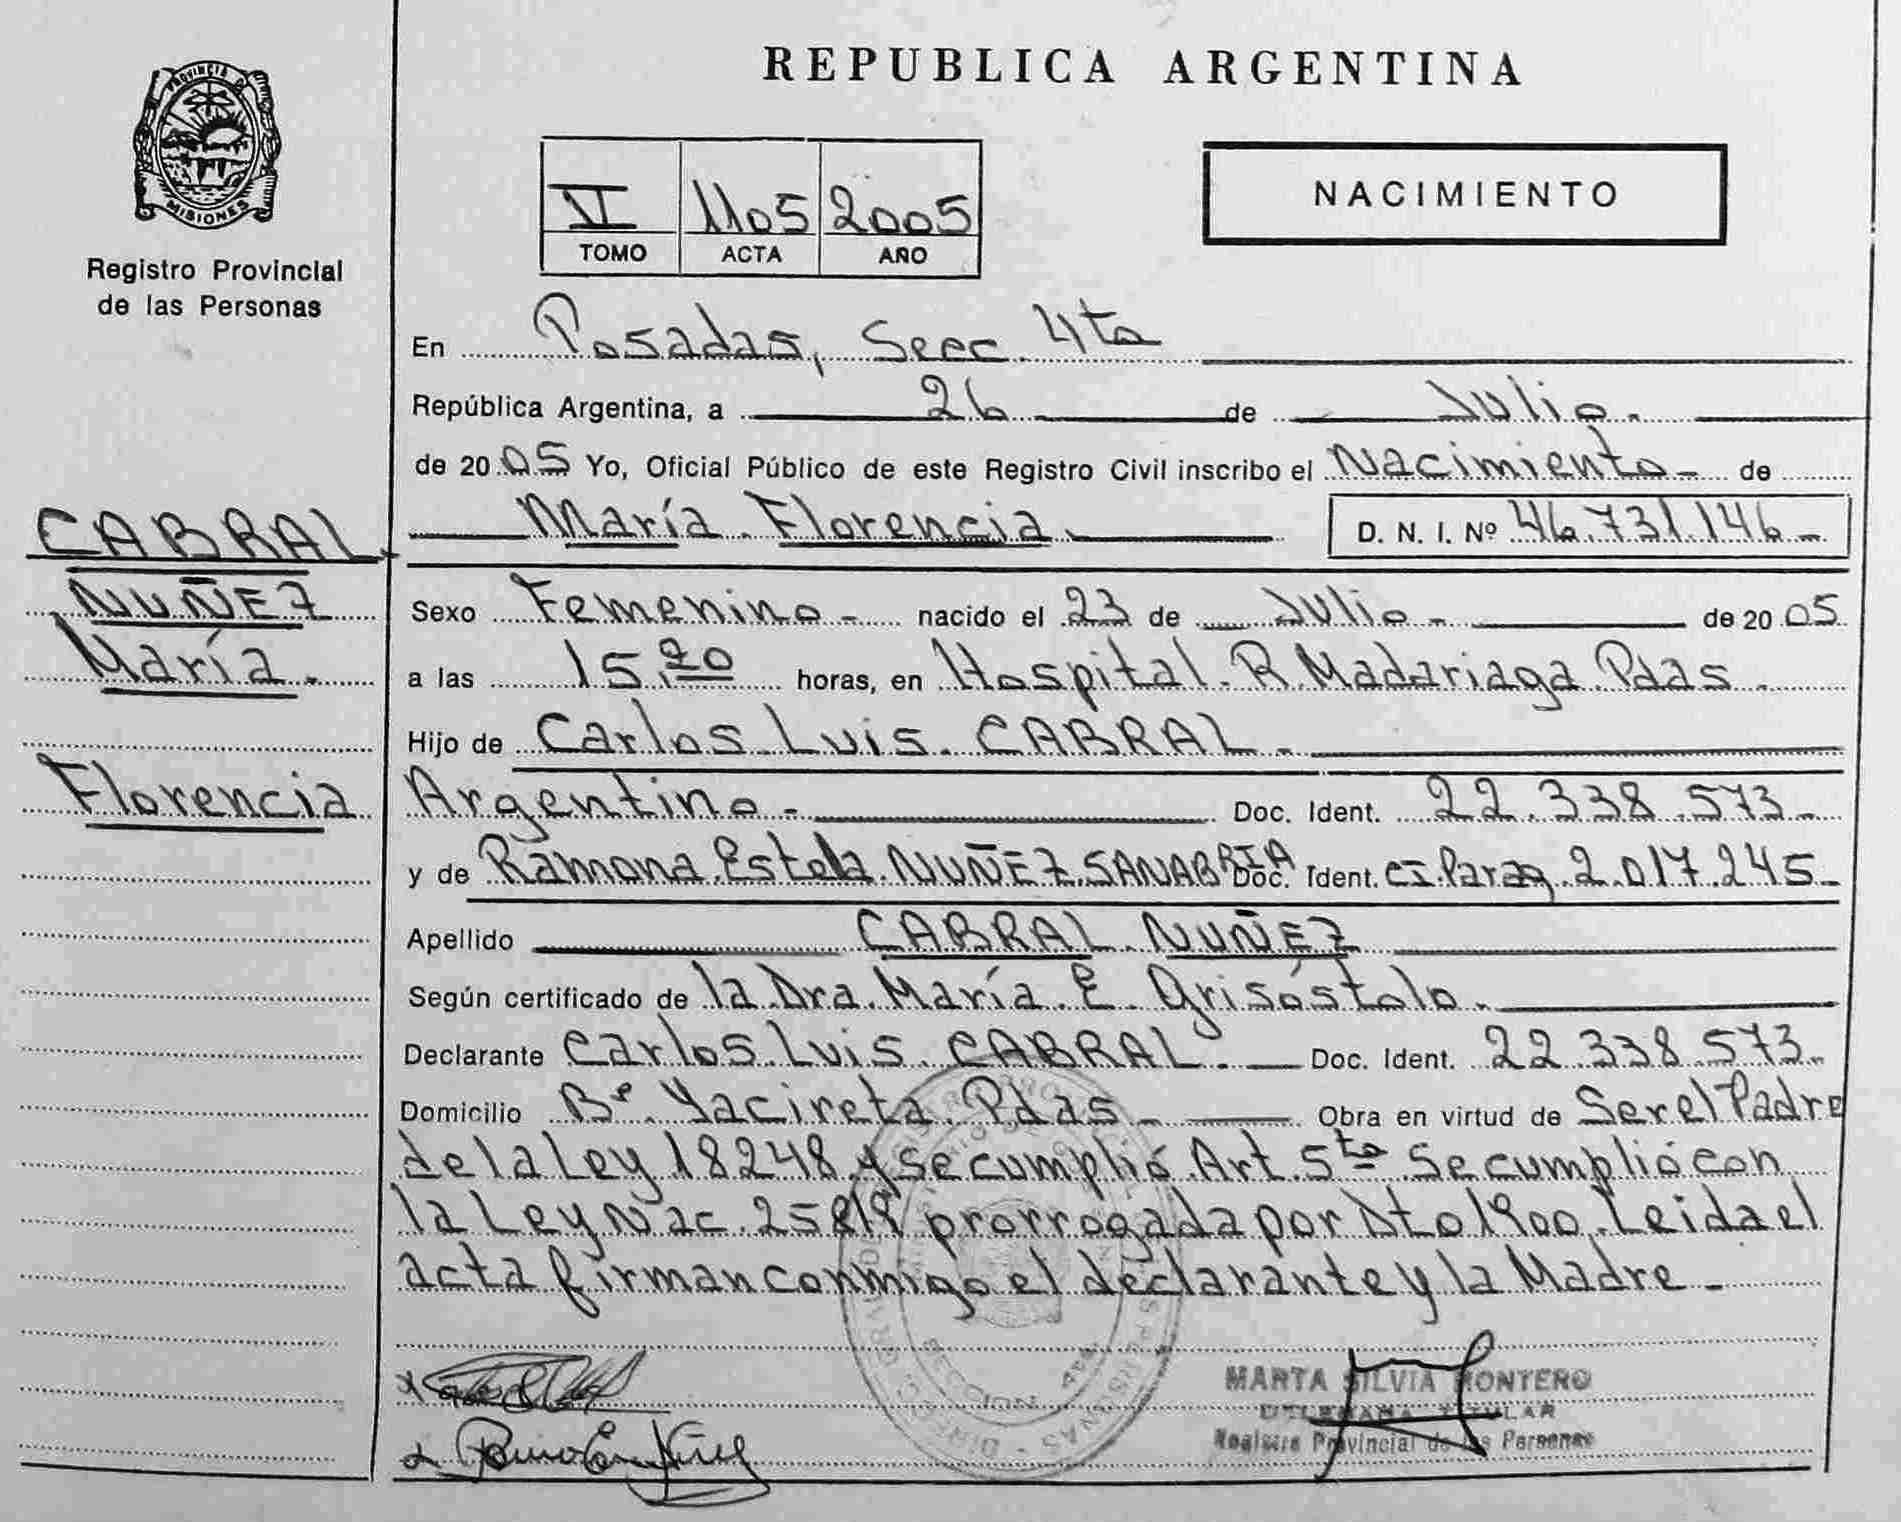 PROVINCIA DE
MISIONES
Registro Provincial
de las Personas
CABRAL
NUÑEZ
María.
Florencia
REPUBLICA ARGENTINA
VI 1105 2005
TOMO ACTA AÑO
NACIMIENTO
En Posadas, Secc. 4ta
República Argentina, a 26 de Julio.
de 2005 Yo, Oficial Público de este Registro Civil inscribo el Nacimiento - de
María Florencia. D. N. I. Nº 46.731.146 -
Sexo Femenino - nacido el 23 de Julio - de 2005
a las 15,20 horas, en Hospital R. Madariaga Pdas.
Hijo de Carlos Luis CABRAL -
Argentino - Doc. Ident. 22.338.573 -
y de Ramona Estela NUÑEZ SANABRIA Doc. Ident. CI. Parag. 2.017.245 -
Apellido CABRAL NUÑEZ
Según certificado de la Dra. María E. Grisóstolo.
Declarante Carlos Luis CABRAL - Doc. Ident. 22.338.573 -
Domicilio Bº Yacireta Pdas - Obra en virtud de Ser el Padre
de la Ley 18248 y se cumplió Art. 5to Se cumplió con
la Ley Nac. 25819 prorrogada por Dto 1900. Leida el
acta firman conmigo el declarante y la Madre -
MARTA SILVIA MONTERO
DELEGADA TITULAR
Registro Provincial de las Personas